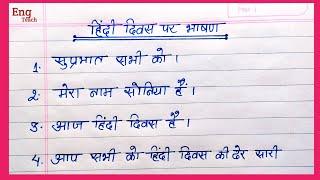 Eng
Teach
हिंदी दिवस पर भाषण
1. सुप्रभात सभी को ।
2. मेरा नाम सोनिया है ।
3. आज हिंदी दिवस है ।
4. आप सभी को हिंदी दिवस की ढेर सारी